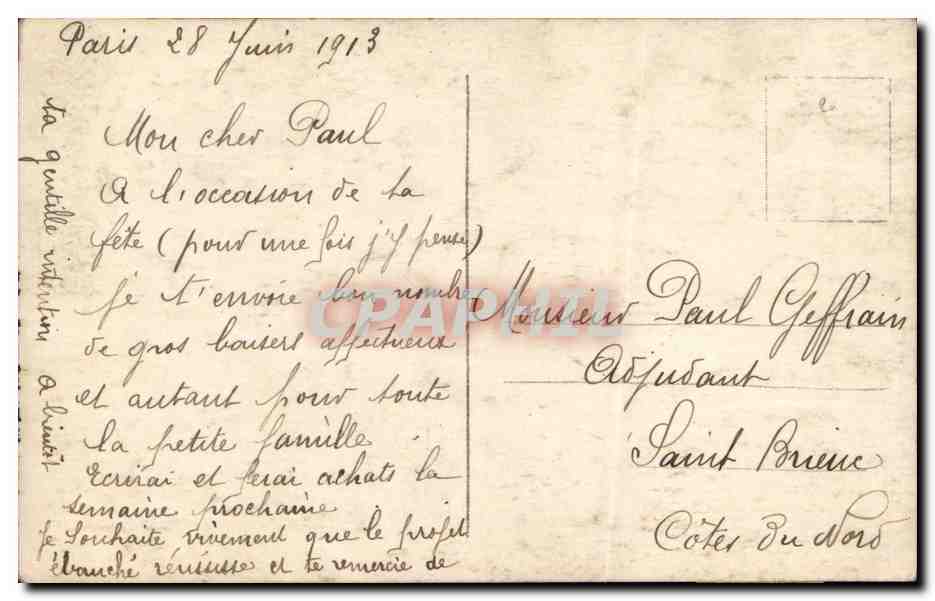 Paris 28 Juin 1913
Mon cher Paul
A l'occasion de ta
fête (pour une fois j'y pense)
je t'envoie bon nombre
de gros baisers affectueux
et autant pour toute
la petite famille
Ecrirai et ferai achats la
semaine prochaine
Je souhaite vivement que le projet
ébauché réussisse et te remercie de
ta gentille intention A bientôt
Monsieur Paul Geffrain
Adjudant
Saint Brieuc
Côtes du Nord
CPAPHIL